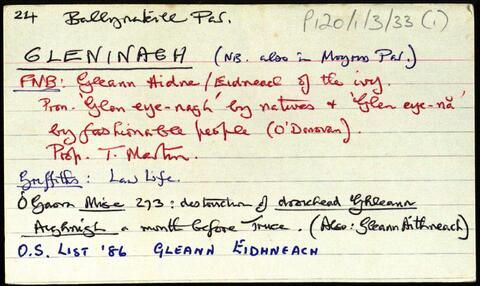 24 Ballynakill Par. P120/1/3/33 (1)
GLENINAGH (NB. also in Moyrus Par.)
FNB: Gleann Aidne/Eidneach of the ivy.
Pron. 'Glen eye-nagh' by natives & 'Glen eye-nă'
by fashionable people (O'Donovan).
Prop. T. Martin.
Griffiths: Law Life.
Ó Gaora Mise 273: destruction of droichead Ghleann
Aighnigh a month before Truce. (Also: Gleann Aithneach)
O.S. LIST '86 GLEANN EIDHNEACH